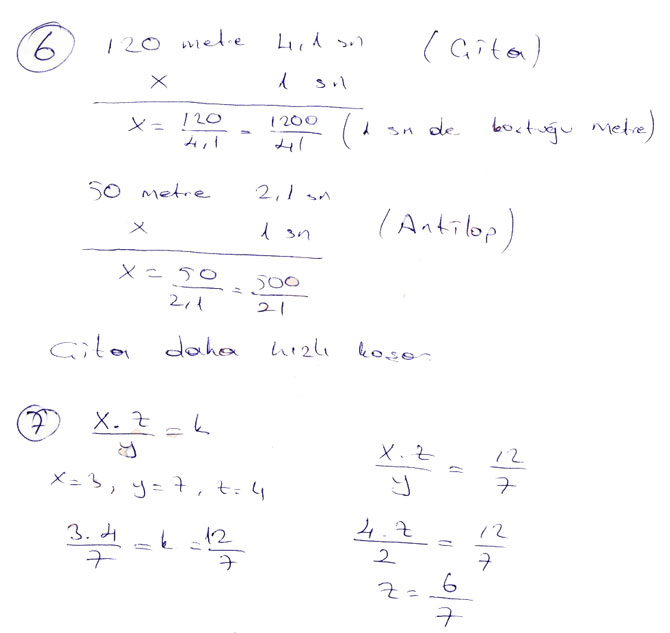 6 120 metre 4,1 sn (Çita)
x 1 sn
x = 120/4,1 = 1200/41 (1 sn de koştuğu metre)
50 metre 2,1 sn
x 1 sn (Antilop)
x = 50/2,1 = 500/21
Çita daha hızlı koşar
7 x.z/y = k
x=3, y=7, z=4
3.4/7 = k = 12/7
x.z/y = 12/7
4.z/2 = 12/7
z = 6/7